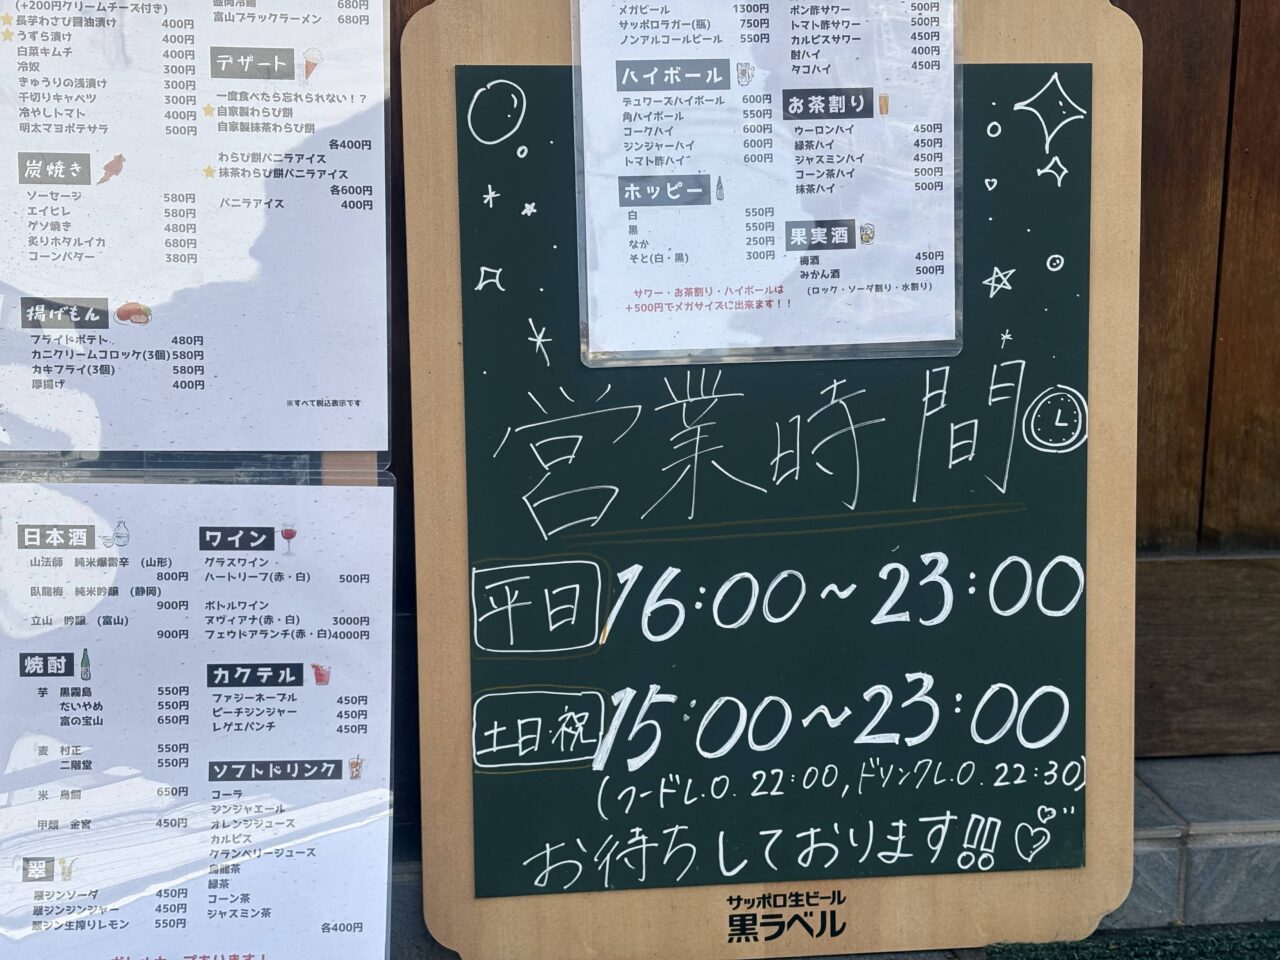 (+200円クリームチーズ付き)
長芋わさび醤油漬け 400円
うずら漬け 400円
白菜キムチ 400円
冷奴 300円
きゅうりの浅漬け 300円
千切りキャベツ 300円
冷やしトマト 400円
明太マヨポテサラ 500円
炭焼き
ソーセージ 580円
エイヒレ 580円
ゲソ焼き 480円
炙りホタルイカ 680円
コーンバター 380円
揚げもん
フライドポテト 480円
カニクリームコロッケ(3個) 580円
カキフライ(3個) 580円
厚揚げ 400円
盛岡冷麺 680円
富山ブラックラーメン 680円
デザート
一度食べたら忘れられない!?
自家製わらび餅
自家製抹茶わらび餅
各400円
わらび餅バニラアイス
抹茶わらび餅バニラアイス
各600円
バニラアイス 400円
※すべて税込表示です
日本酒
山法師 純米爆雷辛 (山形)
800円
臥龍梅 純米吟醸 (静岡)
900円
立山 吟醸 (富山)
900円
焼酎
芋 黒霧島 550円
だいやめ 550円
富の宝山 650円
麦 村正 550円
二階堂 550円
米 鳥飼 650円
甲類 金宮 450円
翠
翠ジンソーダ 450円
翠ジンジンジャー 450円
翠ジン生搾りレモン 550円
ワイン
グラスワイン
ハートリーフ(赤・白) 500円
ボトルワイン
ヌヴィアナ(赤・白) 3000円
フェウドアランチ(赤・白) 4000円
カクテル
ファジーネーブル 450円
ピーチジンジャー 450円
レゲエパンチ 450円
ソフトドリンク
コーラ
ジンジャエール
オレンジジュース
カルピス
クランベリージュース
烏龍茶
緑茶
コーン茶
ジャスミン茶
各400円
メガビール 1300円
サッポロラガー(瓶) 750円
ノンアルコールビール 550円
ハイボール
デュワーズハイボール 600円
角ハイボール 550円
コークハイ 600円
ジンジャーハイ 600円
トマト酢ハイ 600円
ホッピー
白 550円
黒 550円
なか 250円
そと(白・黒) 300円
ポン酢サワー 500円
トマト酢サワー 500円
カルピスサワー 450円
酎ハイ 400円
タコハイ 450円
お茶割り
ウーロンハイ 450円
緑茶ハイ 450円
ジャスミンハイ 450円
コーン茶ハイ 500円
抹茶ハイ 500円
果実酒
梅酒 450円
みかん酒 500円
(ロック・ソーダ割り・水割り)
サワー・お茶割り・ハイボールは
+500円でメガサイズに出来ます!!
営業時間
平日 16:00~23:00
土日・祝 15:00~23:00
(フードL.O. 22:00, ドリンクL.O. 22:30)
お待ちしております!!
サッポロ生ビール
黒ラベル